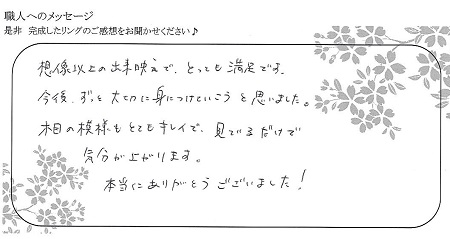 職人へのメッセージ
是非 完成したリングのご感想をお聞かせください♪
想像以上の出来映えで、とっても満足です。
今後、ずっと大切に身につけていこうと思いました。
木目の模様もとてもキレイで、見てるだけで
気分が上がります。
本当にありがとうございました!